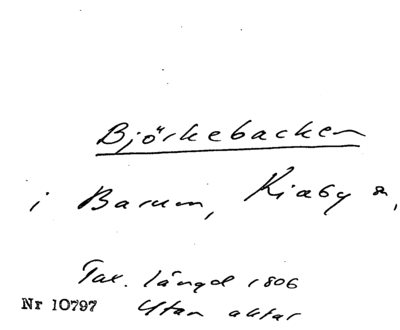 Björkebacken
i Barum, Kiaby sn,
Tax. längd 1806
Nr 10797 Utan aktar